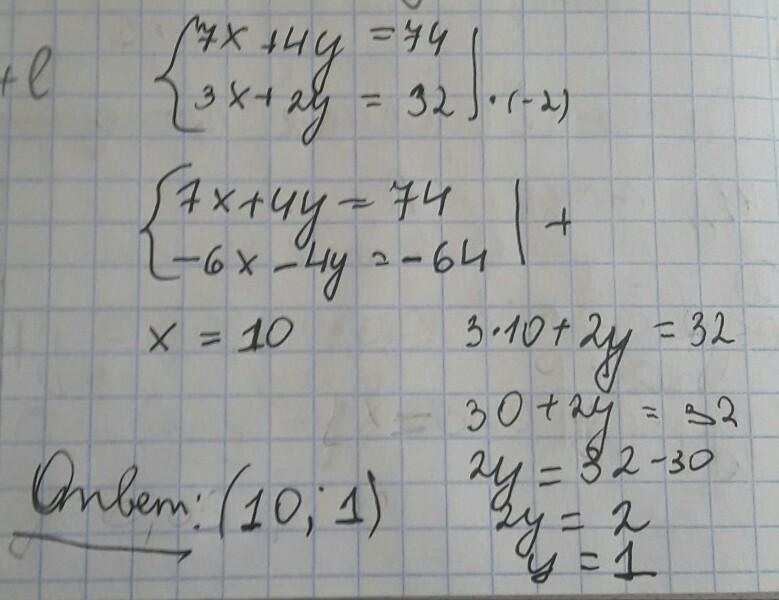 +l
7x + 4y = 74
3x + 2y = 32 | · (-2)
7x + 4y = 74
-6x - 4y = -64 | +
x = 10
3·10 + 2y = 32
30 + 2y = 32
2y = 32 - 30
2y = 2
y = 1
Ответ: (10; 1)